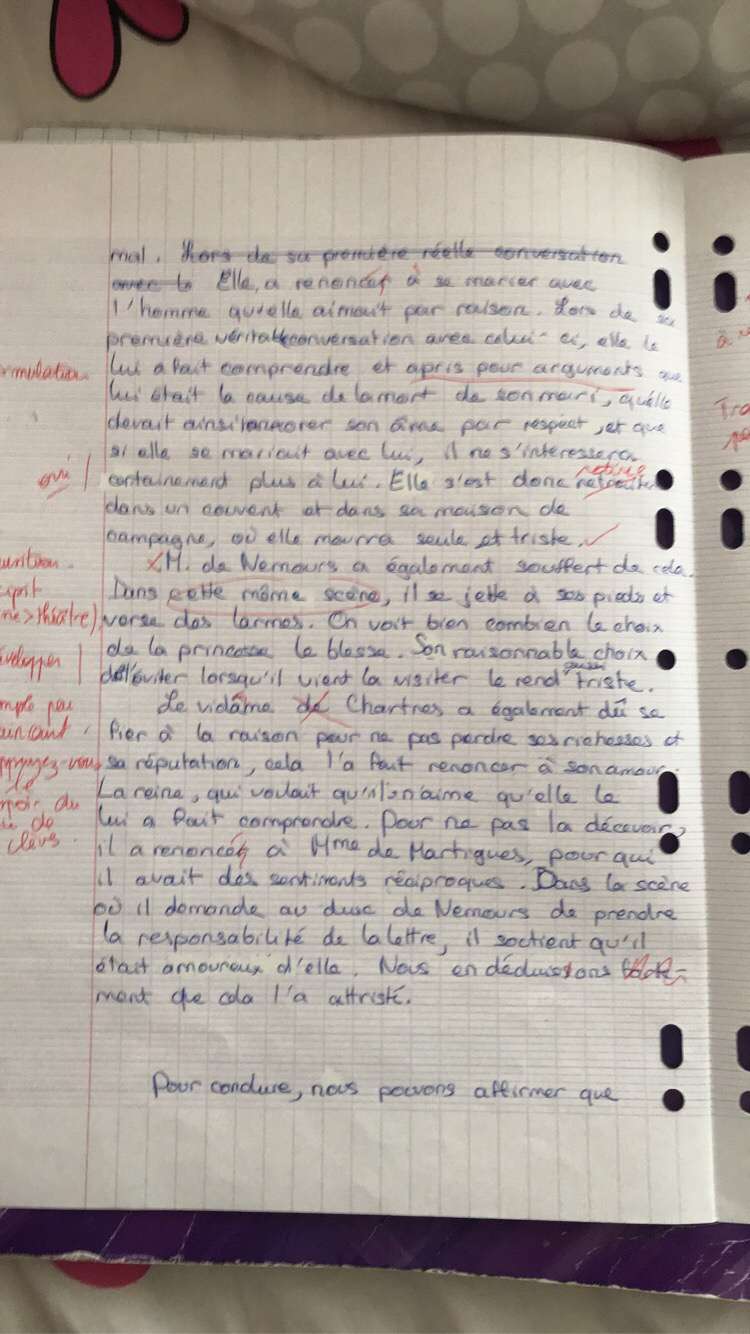 mal. Lors de sa première réelle conversation
avec le Elle, a renoncés à se marier avec
l'homme qu'elle aimait par raison. Lors de sa
première véritable conversation avec celui-ci, elle le
rmulation. lui a fait comprendre et a pris pour arguments que
lui était la cause de la mort de son mari, qu'elle
devait ainsi honorer son âme par respect, et que
si elle se mariait avec lui, il ne s'interessera
oui certainement plus à lui. Elle s'est donc retirée
dans un couvent et dans sa maison de
campagne, où elle mourra seule et triste.
M. de Nemours a également souffert de cela.
Dans cette même scène, il se jette à ses pieds et
ne > théâtre) verse des larmes. On voit bien combien le choix
évelopper de la princesse le blessa. Son raisonnable choix
de l'éviter lorsqu'il vient la visiter le rend aussi triste.
Le vidâme de Chartres a également dû se
fier à la raison pour ne pas perdre ses richesses et
ppuyez-vous sa réputation, cela l'a fait renoncer à son amour.
La reine, qui voulait qu'il n'aime qu'elle le
lui a fait comprendre. Pour ne pas la décevoir,
il a renoncés à Mme de Martigues, pour qui
il avait des sentiments réciproques. Dans la scène
où il demande au duc de Nemours de prendre
la responsabilité de la lettre, il soutient qu'il
était amoureux d'elle. Nous en déduisions
ment que cela l'a attristé.
Pour conclure, nous pouvons affirmer que